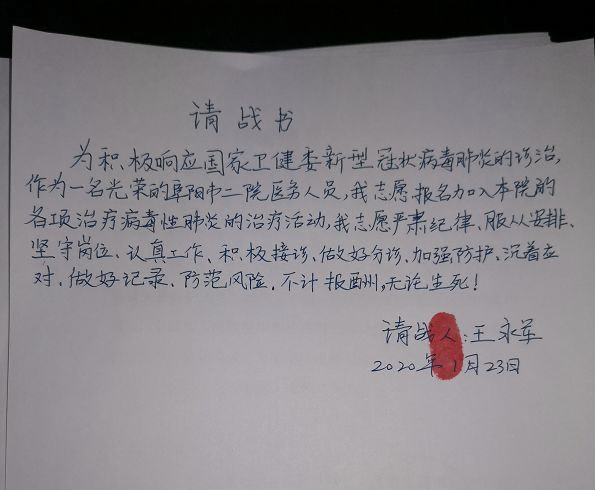 请战书
为积极响应国家卫健委新型冠状病毒肺炎的诊治,
作为一名光荣的阜阳市二院医务人员,我志愿报名加入本院的
各项治疗病毒性肺炎的治疗活动,我志愿严肃纪律、服从安排、
坚守岗位、认真工作、积极接诊、做好分诊、加强防护、沉着应
对、做好记录、防范风险.不计报酬,无论生死!
请战人:王永军
2020年1月23日